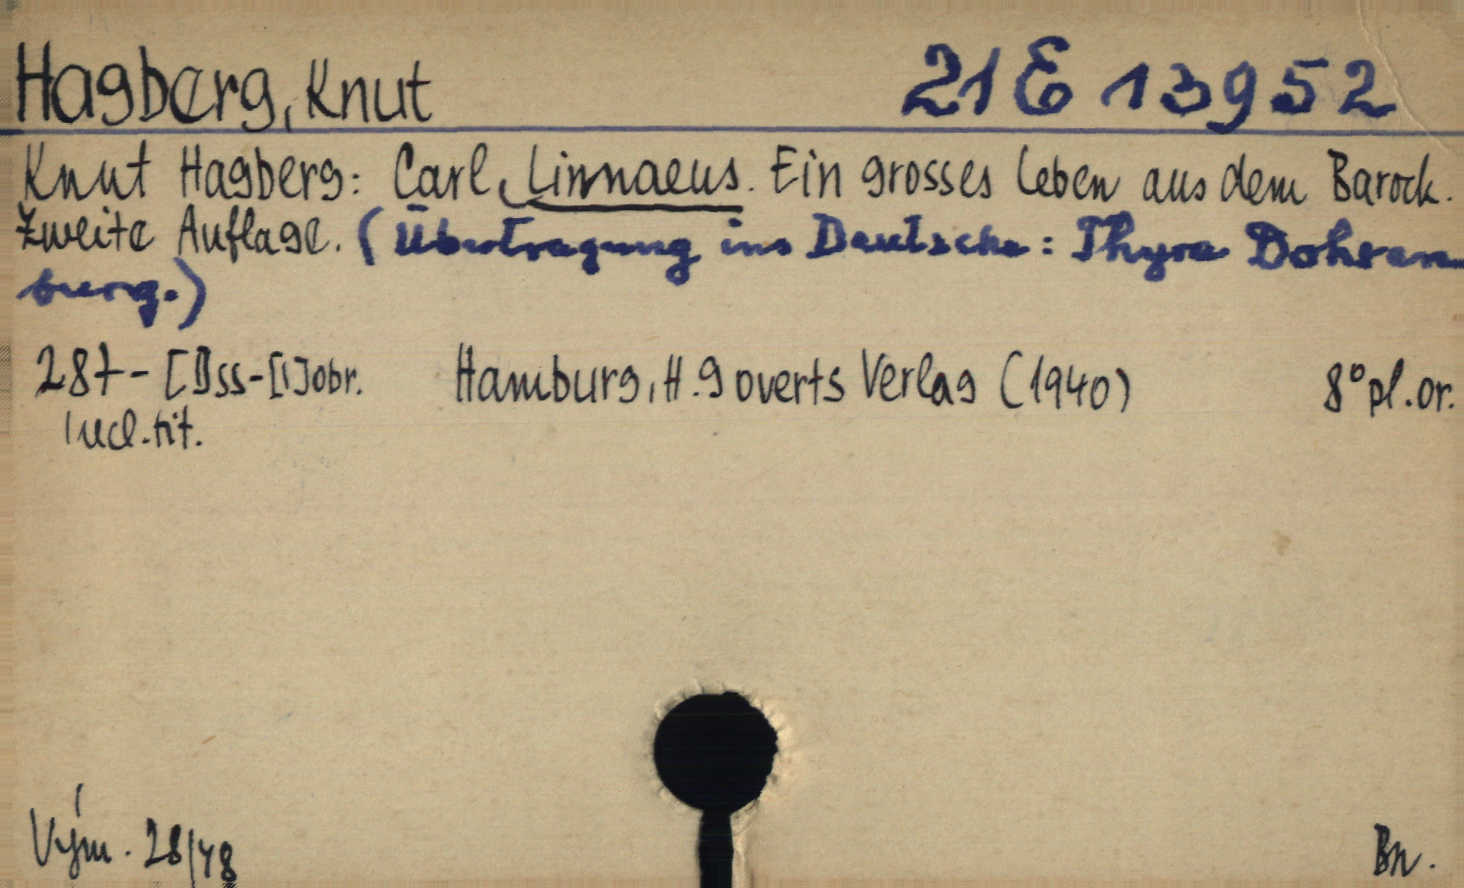 Hagberg, Knut 21 E 13952
Knut Hagberg: Carl Linnaeus. Ein grosses Leben aus dem Barock.
Zweite Auflage. (Übertragung ins Deutsche: Thyra Dohren-
burg.)
287- [I]ss-[1]obr. Hamburg, H. Goverts Verlag (1940) 8° pl. or.
incl. tit.
Vým. 28/48 Bn.